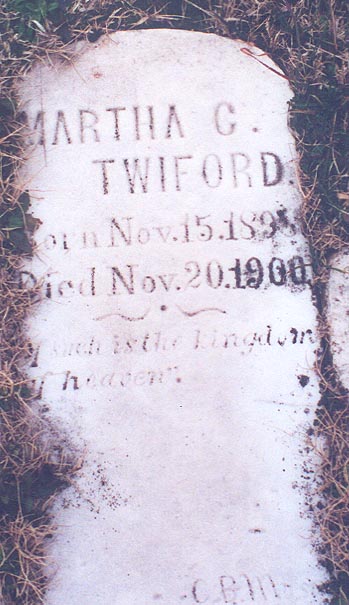 MARTHA G.
TWIFORD
Born Nov. 15. 1898
Died Nov. 20. 1900
of such is the kingdom
of heaven".
C.B.M.